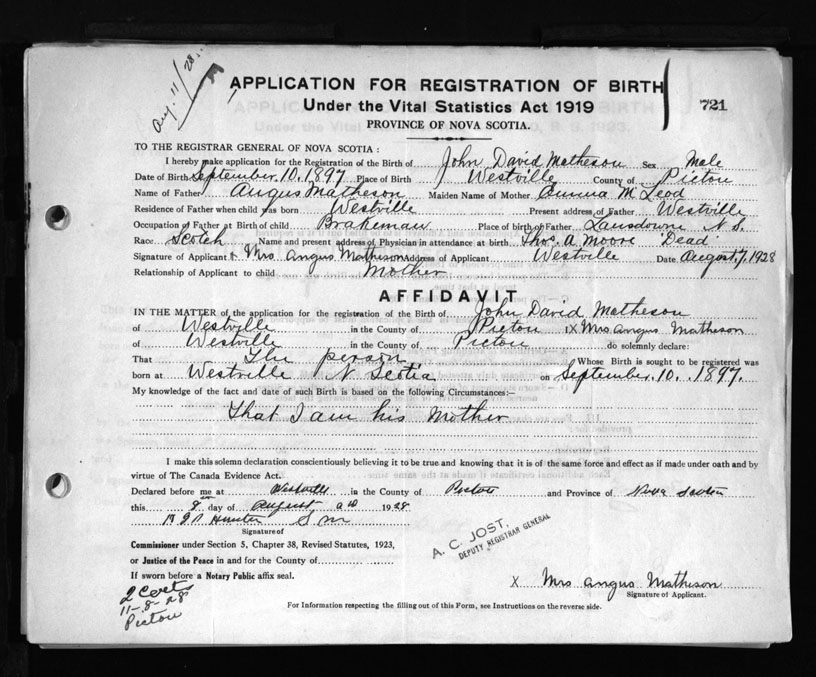 Aug. 11/28.
APPLICATION FOR REGISTRATION OF BIRTH
Under the Vital Statistics Act 1919
PROVINCE OF NOVA SCOTIA.
721
TO THE REGISTRAR GENERAL OF NOVA SCOTIA :
I hereby make application for the Registration of the Birth of John David Matheson Sex Male
Date of Birth September. 10. 1897 Place of Birth Westville County of Pictou
Name of Father Angus Matheson Maiden Name of Mother McLeod
Residence of Father when child was born Westville Present address of Father Westville
Occupation of Father at Birth of child Brakeman Place of birth of Father Lansdowne N.S.
Race Scotch Name and present address of Physician in attendance at birth Thos. A Moore "Dead"
Signature of Applicant Mrs Angus Matheson Address of Applicant Westville Date August. 7. 1928
Relationship of Applicant to child Mother
AFFIDAVIT
IN THE MATTER of the application for the registration of the Birth of John David Matheson
of Westville in the County of Pictou I X Mrs Angus Matheson
of Westville in the County of Pictou do solemnly declare:
That The person Whose Birth is sought to be registered was
born at Westville N Scotia on September. 10. 1897.
My knowledge of the fact and date of such Birth is based on the following Circumstances:–
That I am his Mother
I make this solemn declaration conscientiously believing it to be true and knowing that it is of the same force and effect as if made under oath and by
virtue of The Canada Evidence Act.
Declared before me at Westville in the County of Pictou and Province of Nova Scotia
this 8 day of August AD 1928
Hunter S M
Signature of
Commissioner under Section 5, Chapter 38, Revised Statutes, 1923,
or Justice of the Peace in and for the County of
If sworn before a Notary Public affix seal.
A. C. JOST,
DEPUTY REGISTRAR GENERAL
X Mrs Angus Matheson
Signature of Applicant.
2 Certs
11-8-28
Pictou
For Information respecting the filling out of this Form, see Instructions on the reverse side.